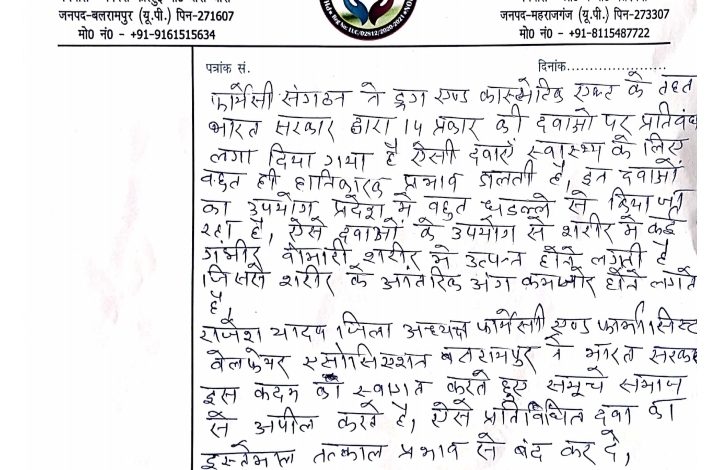 जनपद-बलरामपुर (यू.पी.) पिन-271607
मो0 नं0 - +91-9161515634
Reg No. LLC/02812/2020-2021
जनपद-महराजगंज (यू.पी.) पिन-273307
मो0 नं0 - +91-8115487722
पत्रांक सं.
दिनांक........................
फार्मेसी संगठन ने ड्रग एण्ड कास्मेटिक एक्ट के तहत
भारत सरकार द्वारा 14 प्रकार की दवाओ पर प्रतिबंध
लगा दिया गया है ऐसी दवाऐं स्वास्थ्य के लिए
बहुत ही हानिकारक प्रभाव डालती है, इन दवाओं
का उपयोग प्रदेश मे बहुत धडल्ले से किया जा
रहा है, ऐसे दवाओं के उपयोग से शरीर मे कई
गंभीर बीमारी शरीर मे उत्पन्न होने लगती है
जिससे शरीर के आंतरिक अंग कमजोर होने लगते
है,
राजेश यादव जिला अध्यक्ष फार्मेसी एण्ड फार्मासिस्ट
वेलफेयर एसोसिएशन बलरामपुर ने भारत सरकार
इस कदम का स्वागत करते हुए समूचे समाज
से अपील करते है, ऐसे प्रतिबंधित दवा का
इस्तेमाल तत्काल प्रभाव से बंद कर दे,